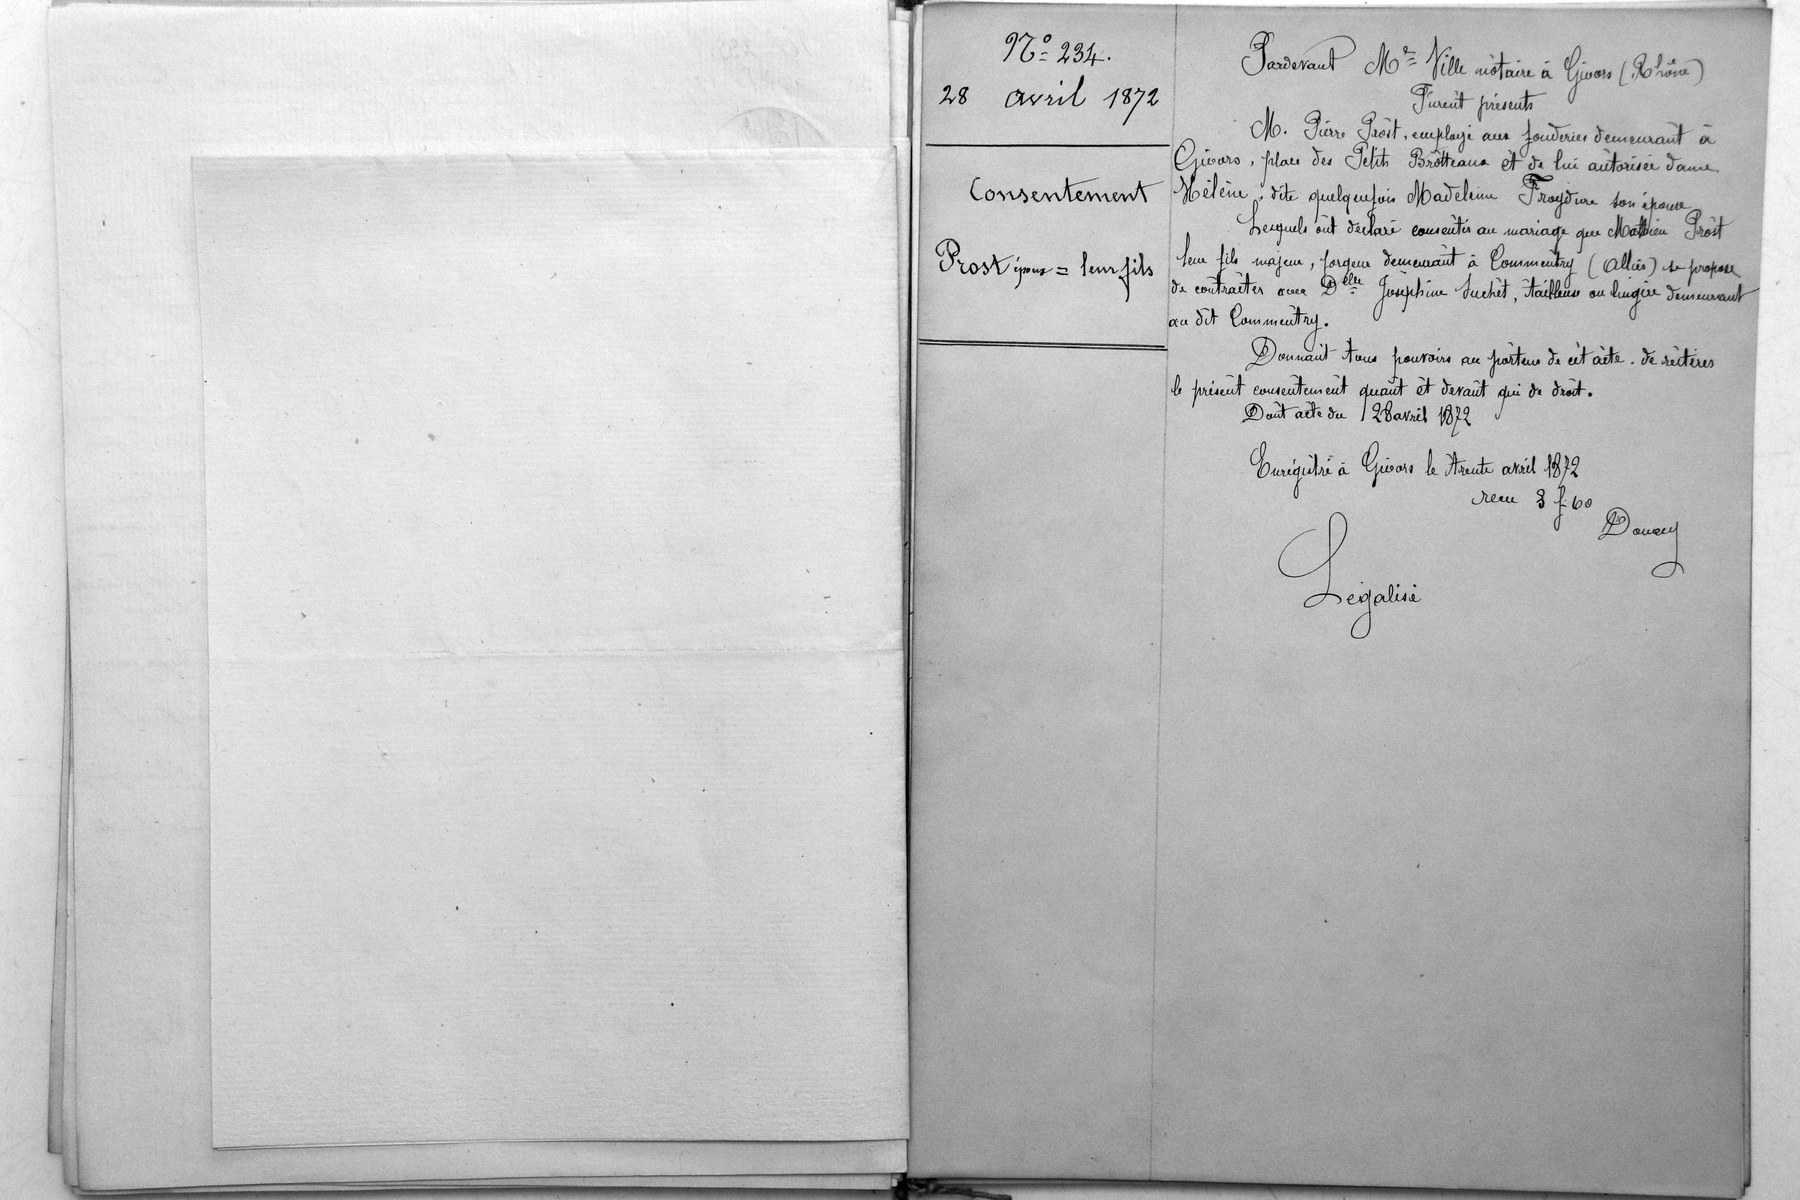 N° 234.
28 avril 1872
Consentement
Prost époux = leur fils
Pardevant Me Ville notaire à Givors (Rhône)
Furent présents
M. Pierre Prost, employé aux fonderies demeurant à
Givors, place des Petits Brotteaux et de lui autorisée dame
Hélène, dite quelquefois Madeleine Froydure son épouse
Lesquels ont déclaré consentir au mariage que Mathieu Prost
leur fils majeur, forgeur demeurant à Commentry (Allier) se propose
de contracter avec Delle Joséphine Suchet, tailleuse ou lingère demeurant
au dit Commentry.
Donnant tous pouvoirs au porteur de cet acte. de réitérer
le présent consentement quant et devant qui de droit.
Dont acte du 28 avril 1872
Enregistré à Givors le trente avril 1872
recu 3 f 60
Légalisé